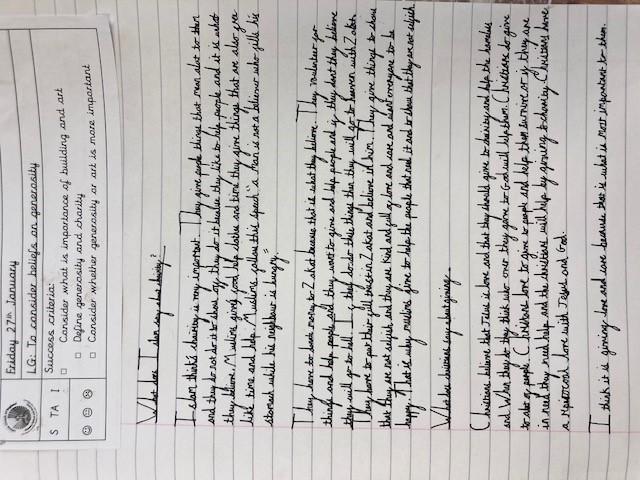 Friday 27th January
LG: To consider beliefs on generosity
Success criteria:
S TA I
Consider what is importance of building and art
Define generosity and charity
Consider whether generosity or art is more important
What does Islam say about charity?
Islam think's charity is very important. They give people things that mean alot to them
and they do not do it to show off they do it because they like to help people and it is what
they believe. Muslims giving food help clothes and time they give things that are also free
like time and help. Muslims follow this speech "a man is not a believer who fills his
stomach while his neighbour is hungry"
They have to donate money to Zakat because that is what they believe. They volunteer for
things and help people and they want to give and help people and if they dont they believe
they will go to hell. If they do do these things than they will go to heaven with Zakath
they have to put their full trust in Zakat and believe in him. They give things to show
that they are not selfish and they are kind and full of love and care and want everyone to be
happy. That is why muslims give to help the people that need it and to show that they are not selfish
What does christians say about giving
Christians believe that Jesus is love and that they should give to charity and help the homeless
and What they do they think who ever they give to God will help them. Christians do give
to alot of people. Christians have to give to people and help them survive or if they are
in need they need help and the christians will help by giving to charity. Christians have
a love with Jesus and God.
I think it is giving love and care because that is what is most important to them.